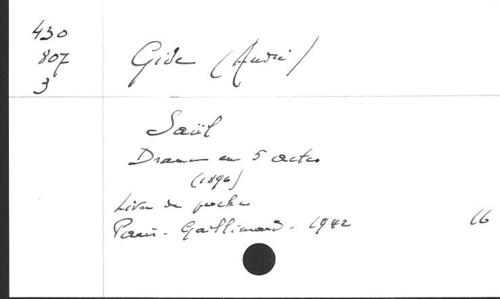 430
807
3
Gide (André)
Saül
Drame en 5 actes
(1896)
Livre de poche
Paris - Gallimard - 1942
16